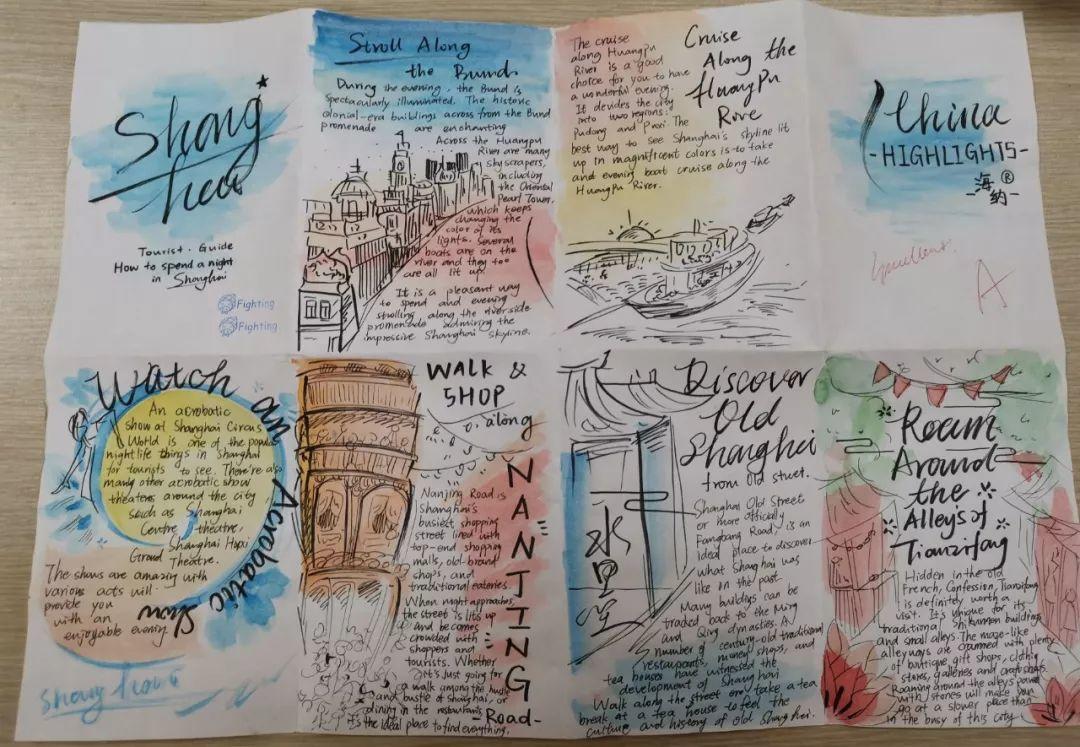 Shang
hai
Tourist. Guide
How to spend a night
in Shanghai
Fighting
Fighting
Stroll Along
the Bund
During the evening, the Bund is
spectacularly illuminated. The historic
colonial-era buildings across from the Bund
promenade are enchanting
Across the Huangpu
River are many
skyscrapers,
including
the Oriental
Pearl Tower.
which keeps
changing the
color of its
lights. Several
boats are on the
river and they too
are all lit up.
It is a pleasant way
to spend and evening
strolling along the riverside
promenade admiring the
impressive Shanghai skyline.
Cruise
Along the
HuangPu
Rove
The cruise
along Huangpu
River is a good
choice for you to have
a wonderful evening.
It devides the city
into two regions:
Pudong and Puxi. The
best way to see Shanghai's skyline lit
up in magnificent colors is to take
and evening boat cruise along the
HuangPu River.
China
-HIGHLIGHTS-
海®
-纳-
Excellent.
A
Watch an Acrobatic Show
An acrobatic
show at Shanghai Circus
World is one of the popular
nightlife things in Shanghai
for tourists to see. There're also
many other acrobatic show
theaters around the city,
such as Shanghai
Centre theatre,
Shanghai
Grand Theatre.
The shows are amazing with
various acts will
provide you
with an
enjoyable evening
Shang hai
WALK &
SHOP
along
NANJING
-Road-
Nanjing Road is
Shanghai's
busiest shopping
street lined with
top-end shopping
malls, old-brand
shops, and
traditional eateries.
When night approaches,
the street is lits up
and becomes
crowded with
shoppers and
tourists. Whether
it's just going for
a walk among the hustle
and bustle of Shanghai, or
dining in the restaurants
It's the ideal place to find everything.
Discover
Old
Shanghai
from old street.
水里
Shanghai Old Street
or more officially
Fangbang Road, is an
ideal place to discover
what Shanghai was
like in the past.
Many buildings can be
traced back to the Ming
and Qing dynasties. A
number of century-old traditional
restaurants, money shops, and
tea houses have witnessed the
development of Shanghai
Walk along the street or take a tea
break at a tea house to feel the
culture and history of old Shanghai.
Roam
Around
the
Alleys of
Tianzifang
Hidden in the old
French, Confession, Tianzifang
is definitely worth a
visit. It's unique for its
traditional Shikumen buildings
and small alleys. The maze-like
alleyways are crammed with plenty
of boutique gift shops, clothing
stores, galleries and craft shops.
Roaming around the alleys
with stories will make you
go at a slower place than
in the busy of this city.